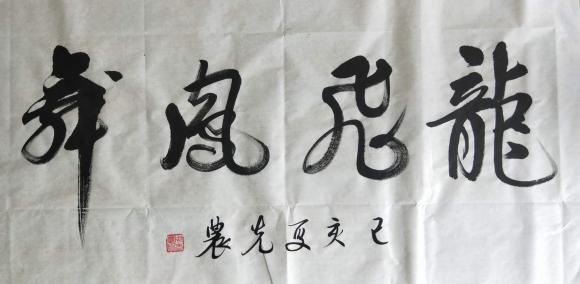 龍飛鳳舞
己亥夏先農